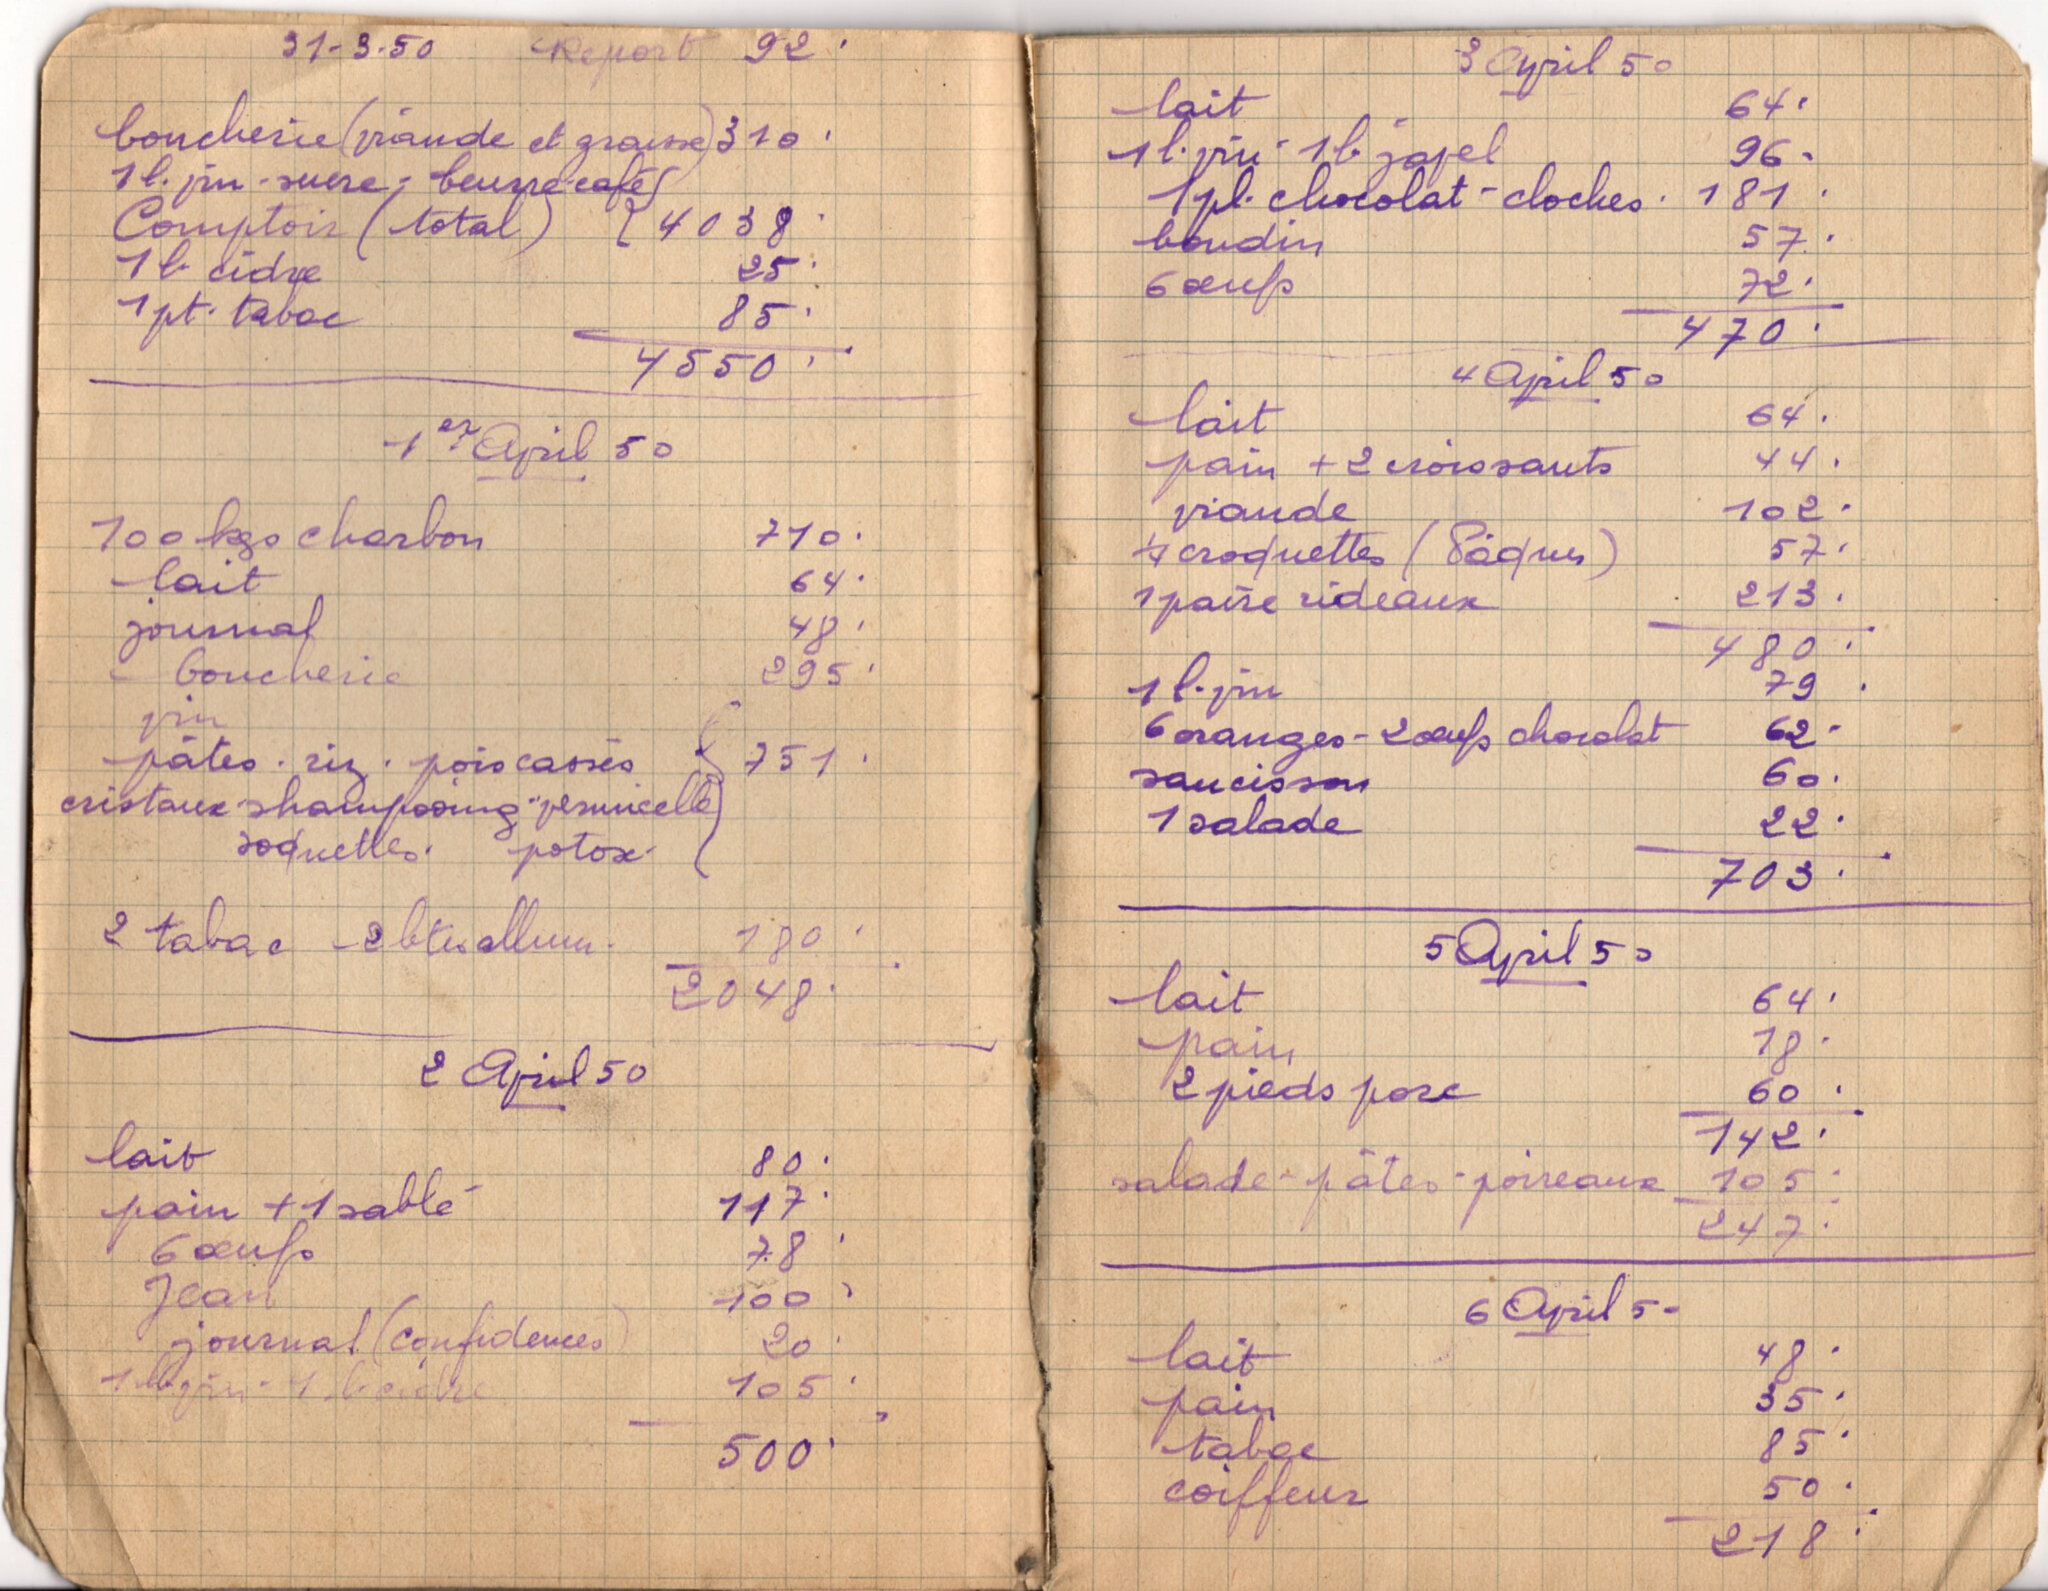 31-3-50 Report 92.
boucherie (viande et graisse) 310.
1 l. vin - sucre - beurre - café
Comptoir (total) 4038.
1 b. cidre 25.
1 pt. tabac 85.
4550.
1er April 50
100 kgs charbon 710.
lait 64.
journal 48.
boucherie 295.
vin
pâtes . riz . pois cassés 751.
cristaux - shampooing - vermicelle
soquettes. potox.
2 tabac - 2 btes allum. 180.
2048.
2 April 50
lait 80.
pain + 1 sablé 117.
6 œufs 78.
Jean 100.
journal (confidences) 20.
1 l. vin - 1 b. cidre 105.
500.
3 April 50
lait 64.
1 l. vin - 1 b. javel 96.
1 pl. chocolat - cloches. 181.
boudin 57.
6 œufs 72.
470.
4 April 50
lait 64.
pain + 2 croissants 44.
viande 102.
croquettes (Pâques) 57.
1 paire rideaux 213.
480.
1 l. vin 79.
6 oranges - 2 œufs chocolat 62.
saucisson 60.
1 salade 22.
703.
5 April 50
lait 64.
pain 18.
2 pieds porc 60.
142.
salade - pâtes - poireaux 105.
247.
6 April 5-
lait 48.
pain 35.
tabac 85.
coiffeur 50.
218.